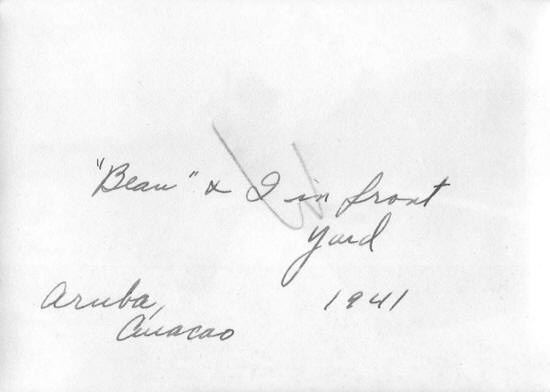 "Beau" & I in front
Yard
Aruba,
Curacao
1941